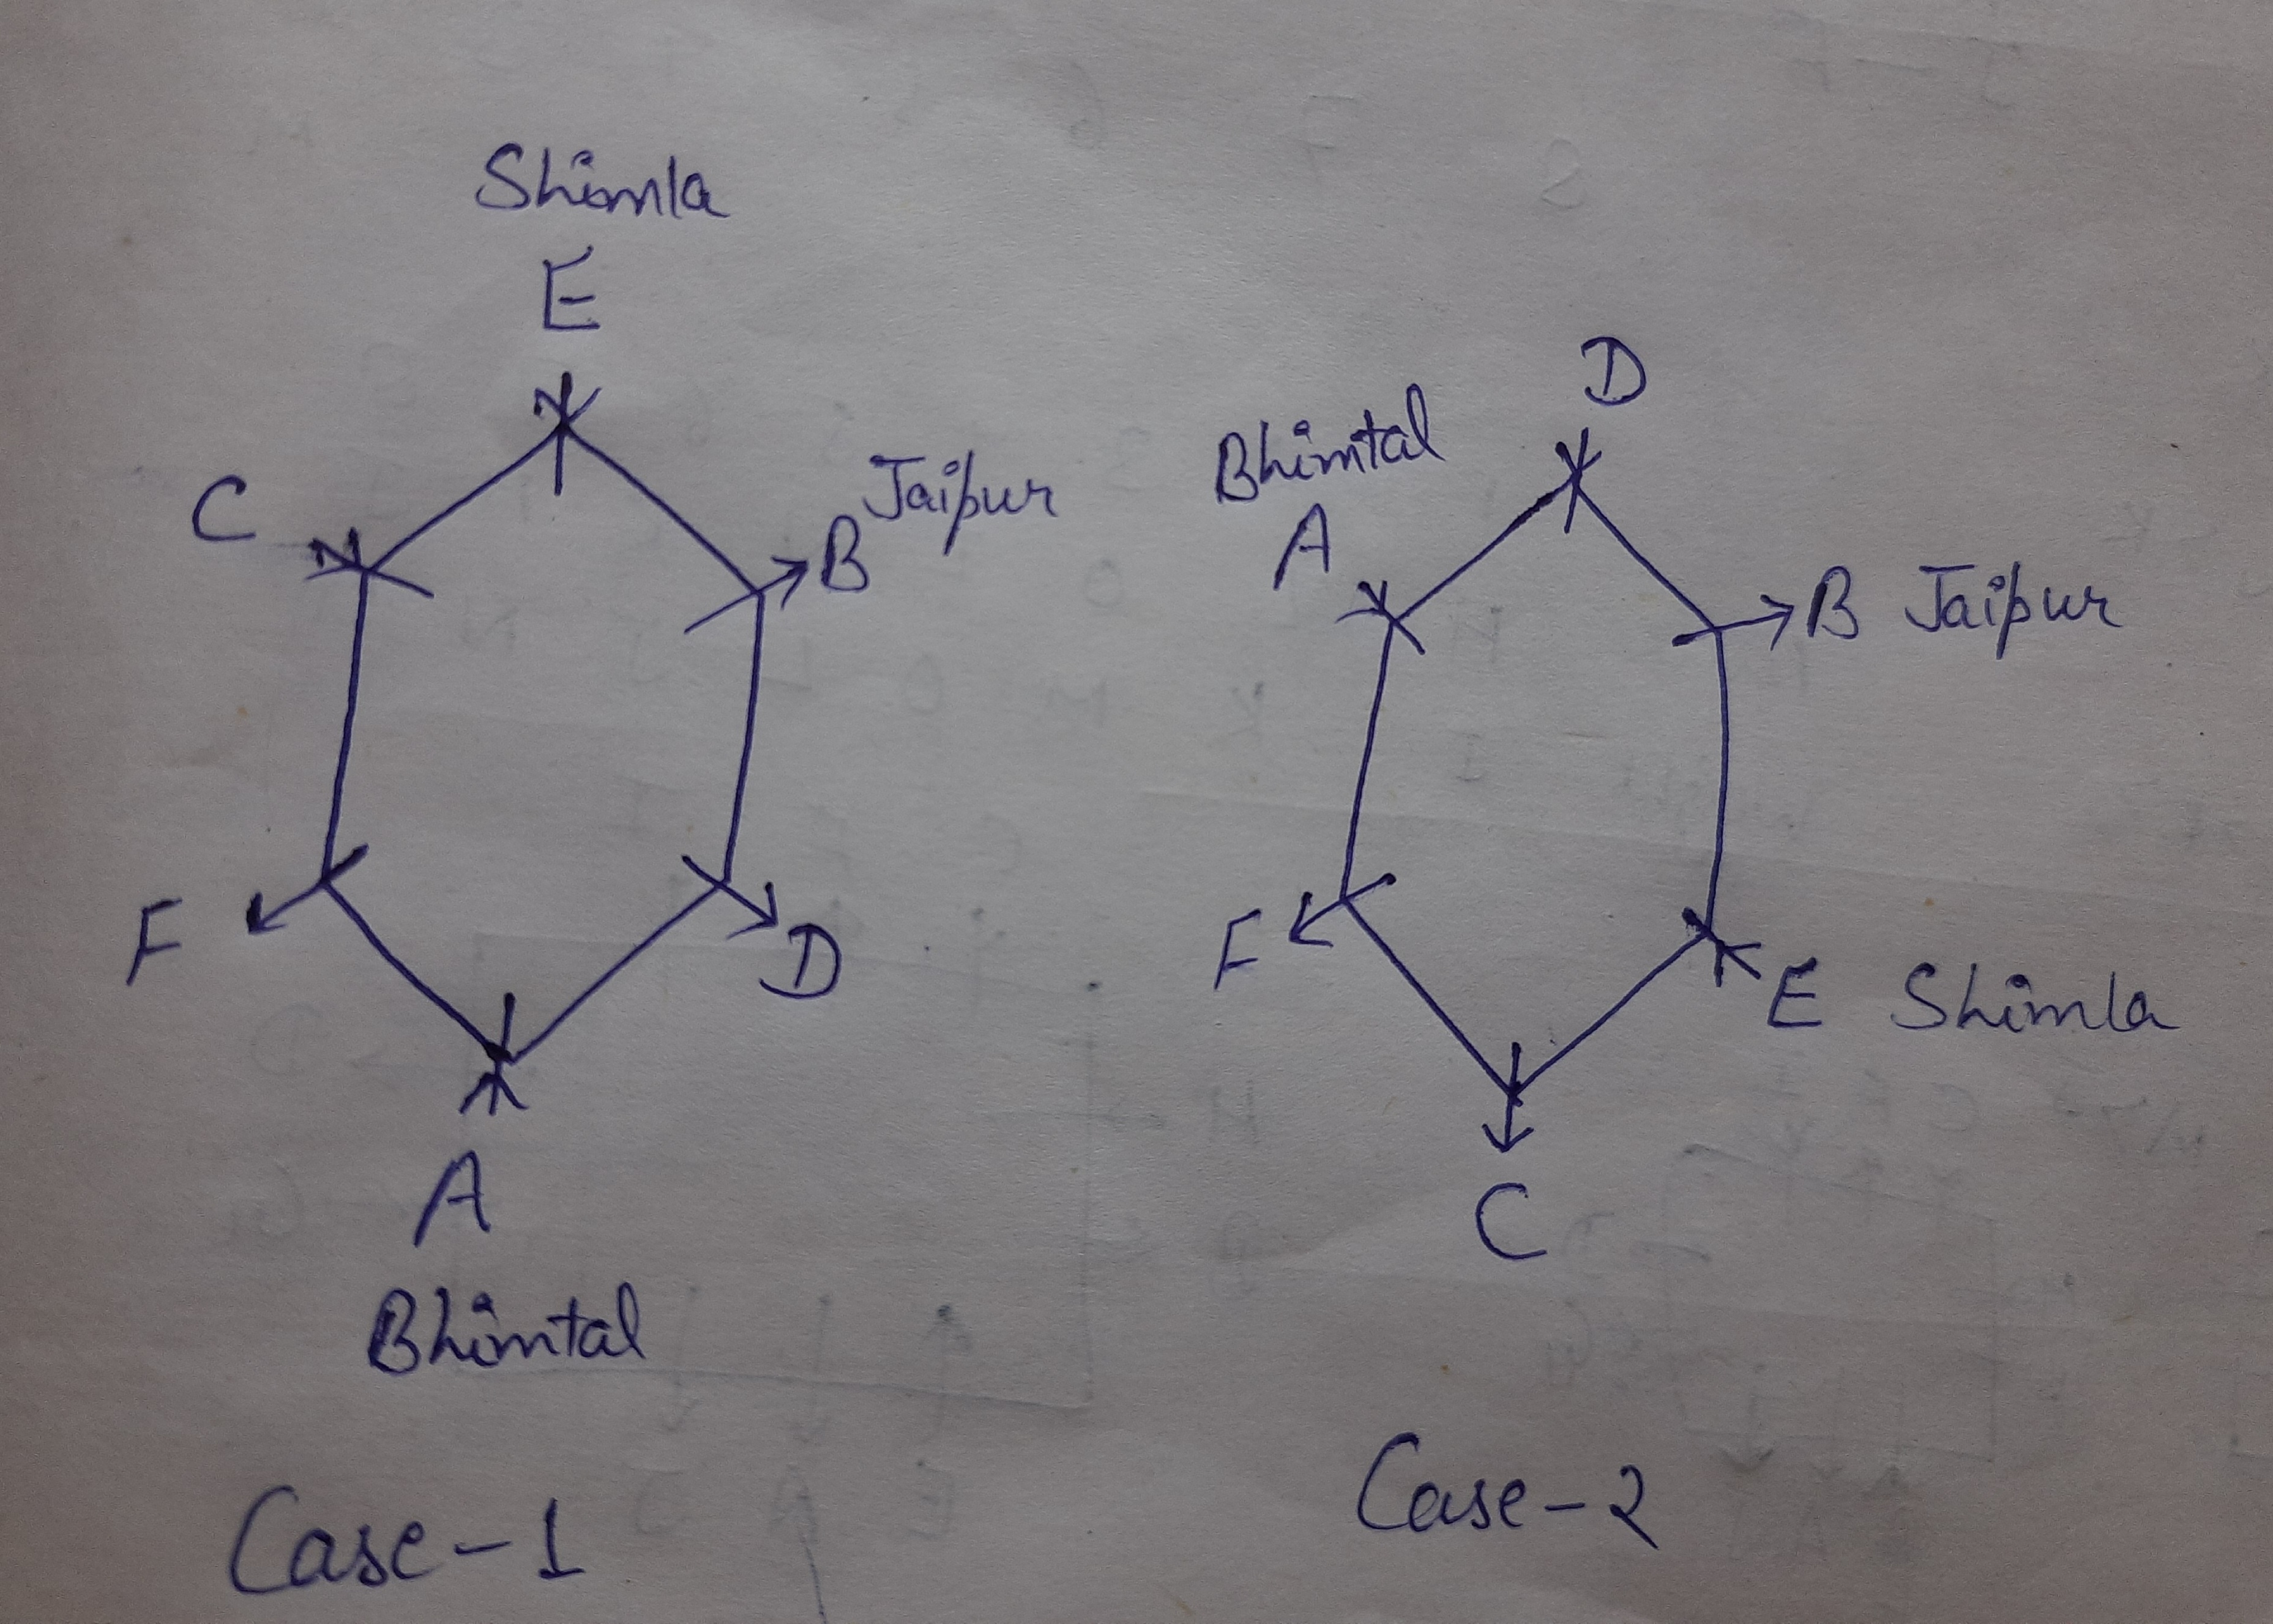 Shimla
E
C
B Jaipur
F
D
A
Bhimtal
Case-1
D
Bhimtal
A
B Jaipur
F
E Shimla
C
Case-2